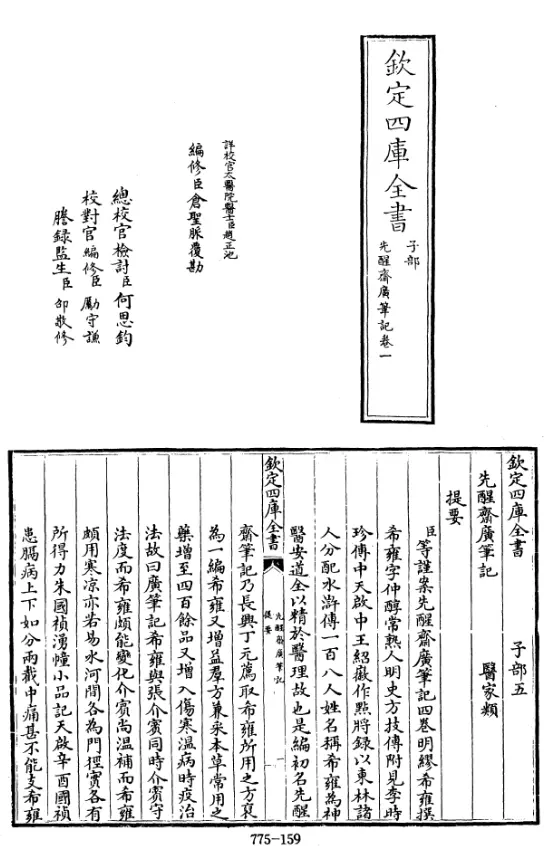 欽定四庫全書
子部
先醒齋廣筆記卷一
詳校官太醫院醫士臣趙正池
編修臣倉聖脈覆勘
總校官檢討臣何思鈞
校對官編修臣勵守謙
謄錄監生臣邵敬修
欽定四庫全書 子部五
先醒齋廣筆記 醫家類
提要
臣等謹案先醒齋廣筆記四卷明繆希雍撰
希雍字仲醇常熟人明史方技傳附見李時
珍傳中天啟中王紹徽作點將錄以東林諸
人分配水滸傳一百八人姓名稱希雍為神
醫安道全以精於醫理故也是編初名先醒
欽定四庫全書
先醒齋廣筆記
提要
齋筆記乃長興丁元薦取希雍所用之方裒
為一編希雍又增益羣方兼采本草常用之
藥增至四百餘品又增入傷寒温病時疫治
法故曰廣筆記希雍與張介賓同時介賓守
法度而希雍頗能變化介賓尚温補而希雍
頗用寒凉亦若易水河間各為門徑實各有
所得力朱國禎湧幢小品記天啟辛酉國禎
患膈病上下如分兩截中痛甚不能支希雍
775-159